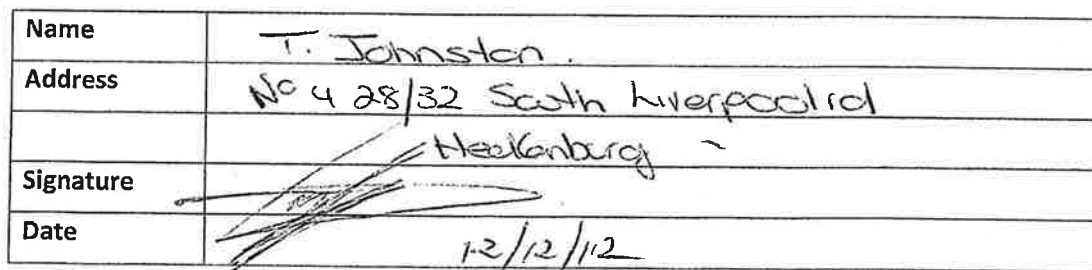 Name T. Johnston.
Address No 4 28/32 South Liverpool rd
Heckenburg
Signature
Date 12/12/12